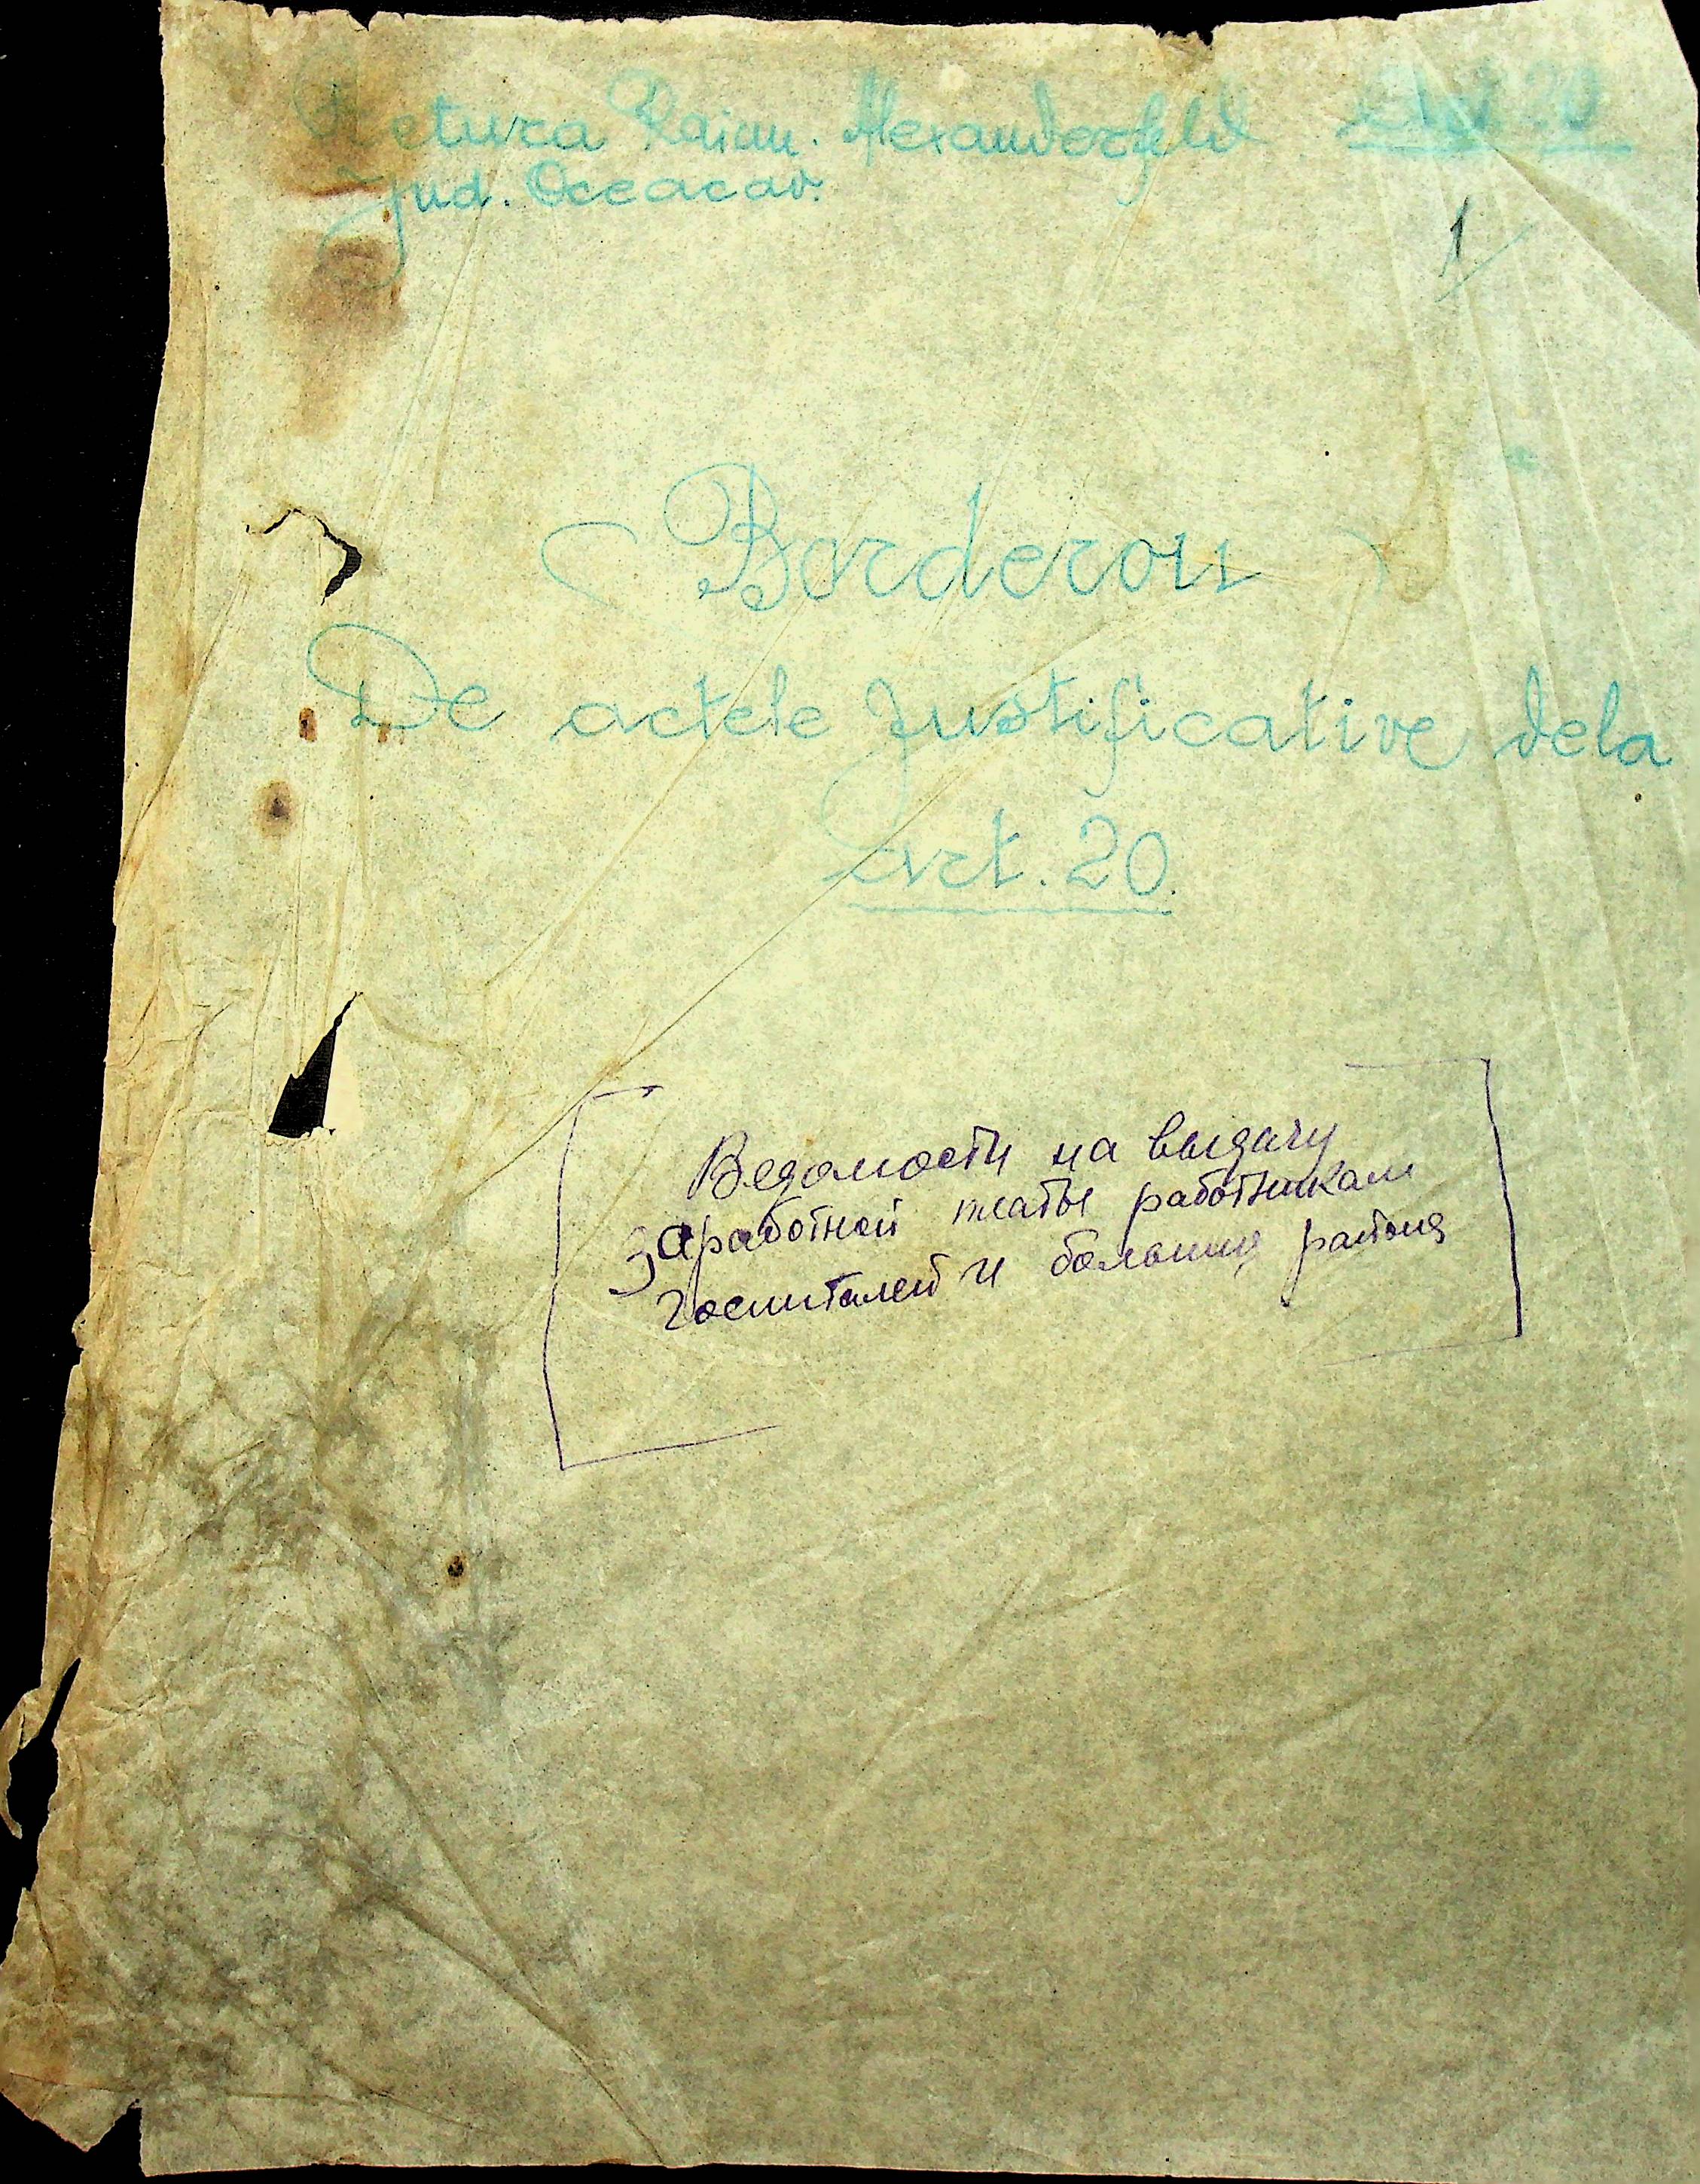 Pretura Raion. Alexanderfeld Art. 20
Jud. Oceacov.
1
Borderou
De actele Justificative dela
art. 20.
Ведомости на выдачу
заработной платы работникам
госпиталей и больниц района